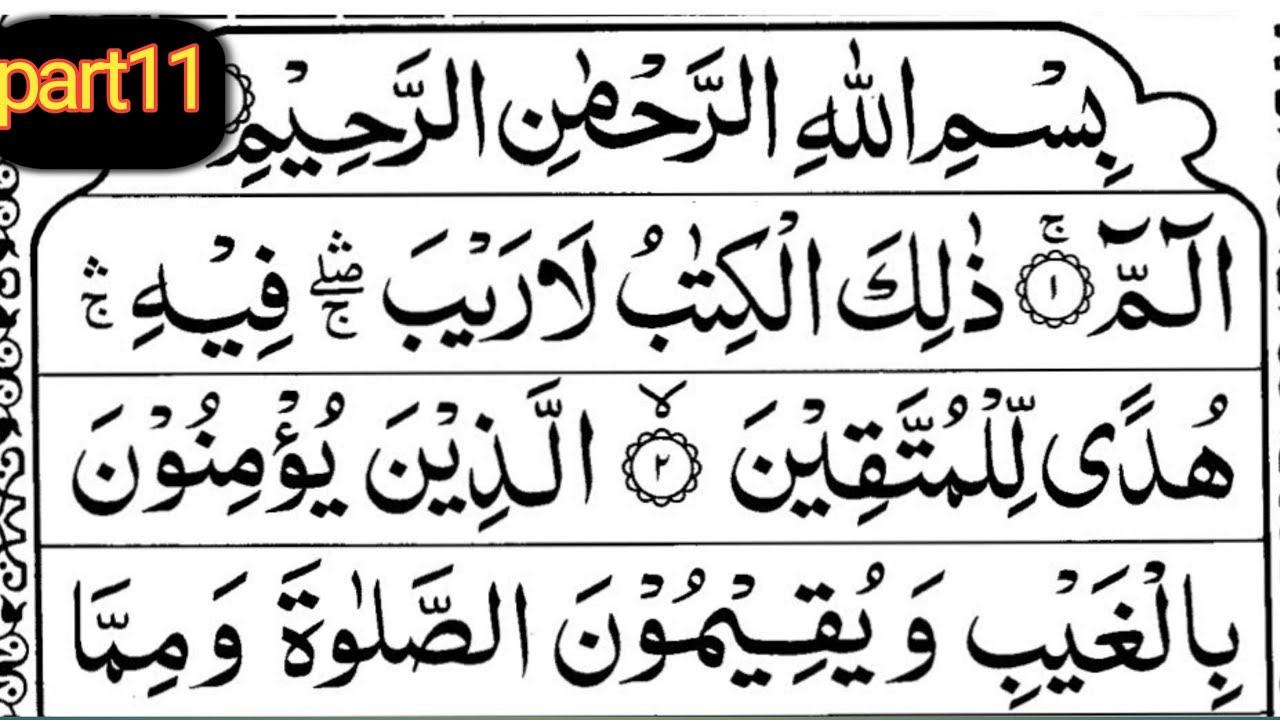 part11
بِسْمِ اللّٰهِ الرَّحْمٰنِ الرَّحِيْمِ
الٓمّٓ ۚ﴿١﴾ ذٰلِكَ الْكِتٰبُ لَا رَيْبَ ۛۖۚ فِيْهِ ۛۚ
هُدًى لِّلْمُتَّقِيْنَ ۙ﴿٢﴾ الَّذِيْنَ يُؤْمِنُوْنَ
بِالْغَيْبِ وَيُقِيْمُوْنَ الصَّلٰوةَ وَمِمَّا